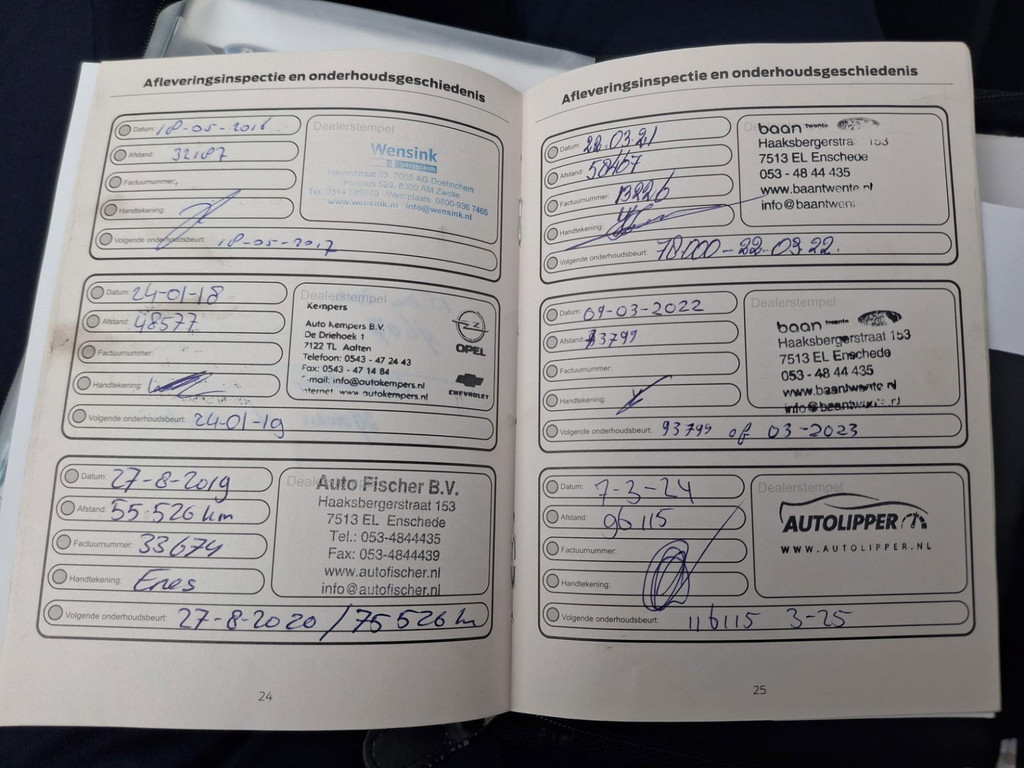 Afleveringsinspectie en onderhoudsgeschiedenis
Datum: 18-05-2016
Afstand: 32187
Factuurnummer:
Handtekening:
Volgende onderhoudsbeurt: 18-05-2017
Dealerstempel
Wensink
7005 AG Doetinchem
8000 AM Zwolle
Werkplaats 0800-936 7465
www.wensink.nl info@wensink.nl
Datum: 24-01-18
Afstand: 48577
Factuurnummer:
Handtekening:
Volgende onderhoudsbeurt: 24-01-19
Dealerstempel
Kempers
Auto Kempers B.V.
De Driehoek 1
7122 TL Aalten
Telefoon: 0543 - 47 24 43
Fax: 0543 - 47 14 84
E-mail: info@autokempers.nl
Internet: www.autokempers.nl
OPEL
CHEVROLET
Datum: 27-8-2019
Afstand: 55 526 km
Factuurnummer: 33674
Handtekening: Enes
Volgende onderhoudsbeurt: 27-8-2020 / 75 526 km
Dealerstempel
Auto Fischer B.V.
Haaksbergerstraat 153
7513 EL Enschede
Tel.: 053-4844435
Fax: 053-4844439
www.autofischer.nl
info@autofischer.nl
24
Afleveringsinspectie en onderhoudsgeschiedenis
Datum: 22.03.21
Afstand: 58467
Factuurnummer: 13226
Handtekening:
Volgende onderhoudsbeurt: 78000-22.03.22.
Dealerstempel
baan twente
Haaksbergerstraat 153
7513 EL Enschede
053 - 48 44 435
www.baantwente.nl
info@baantwen
Datum: 09-03-2022
Afstand: 73799
Factuurnummer:
Handtekening:
Volgende onderhoudsbeurt: 93799 of 03-2023
Dealerstempel
baan twente
Haaksbergerstraat 153
7513 EL Enschede
053 - 48 44 435
www.baantwente.nl
info@baantwente.nl
Datum: 7-3-24
Afstand: 96115
Factuurnummer:
Handtekening:
Volgende onderhoudsbeurt: 116115 3-25
Dealerstempel
AUTOLIPPER
WWW.AUTOLIPPER.NL
25